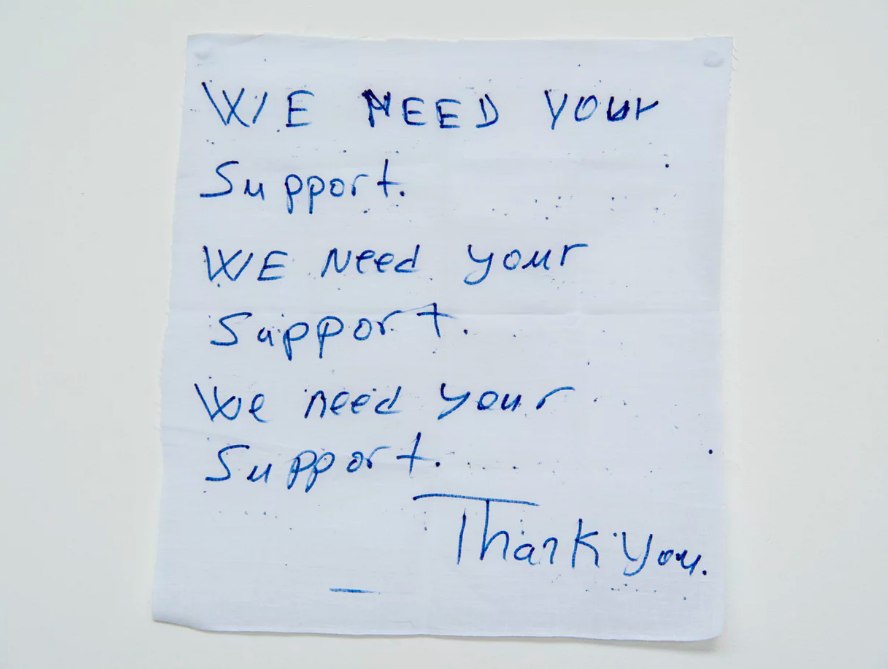 WE NEED YOUr
Support.
WE Need your
Support.
We need your
Support.
Thank You.